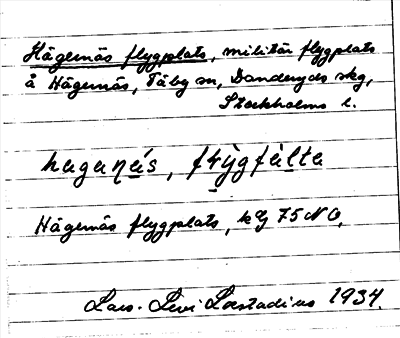 Hägernäs flygplats, militär flygplats
å Hägernäs, Täby sn, Danderyds skg,
Stockholms l.
hagaṇás, flỳgfàlta
Hägernäs flygplats, kbl 75 NO,
Lars-Levi Læstadius 1934.